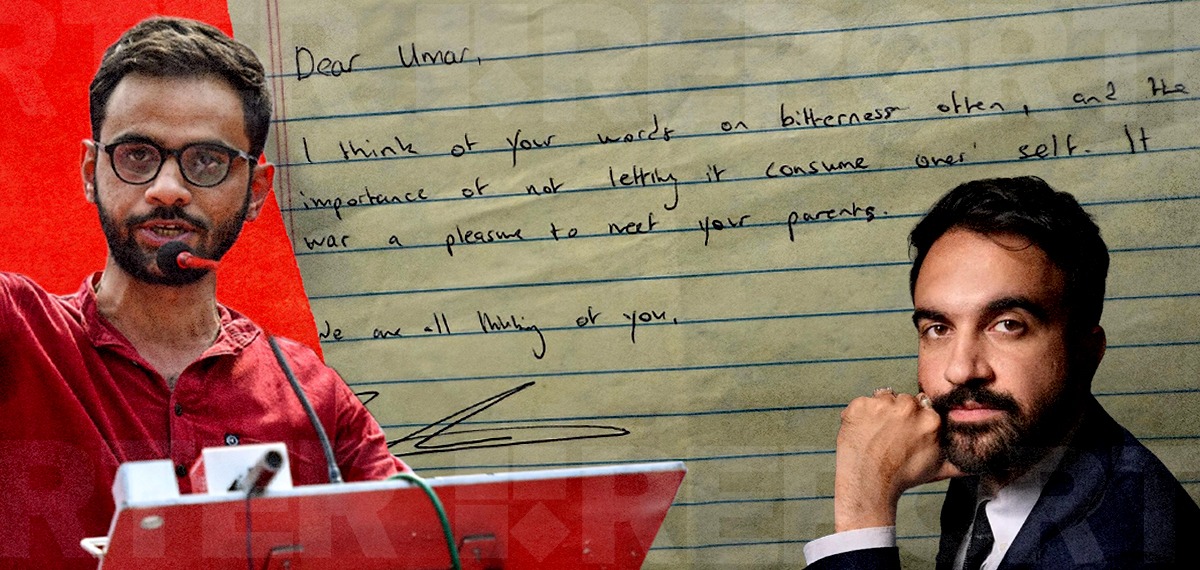 REPORTER
Dear Umar,
I think of your words on bitterness often, and the
importance of not letting it consume ones' self. It
was a pleasure to meet your parents.
We are all thinking of you.